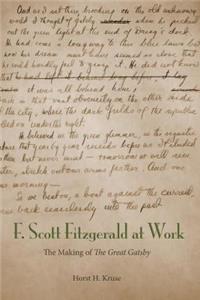 And as I sat there brooding on the old unknown
world I thought of Gatsby when he picked
out the green light at the end of Daisy's dock
He had come a long way to this blue lawn but
dream must have seemed so close that
he could hardly fail to grasp it. He did not know
that he had left it behind long before
it was all behind him,
back in that vast obscurity on the other side
of the city, where the dark fields of the republic
rolled on under the night.
He believed in the green glimmer, in the orgastic
future that year by year recedes before us. It eluded
us then but never mind — tomorrow we will run
faster, stretch out our arms farther. And one
fine morning —
So we beat on, a boat against the current,
borne back ceaselessly into the past
F. Scott Fitzgerald at Work
The Making of The Great Gatsby
Horst H. Kruse